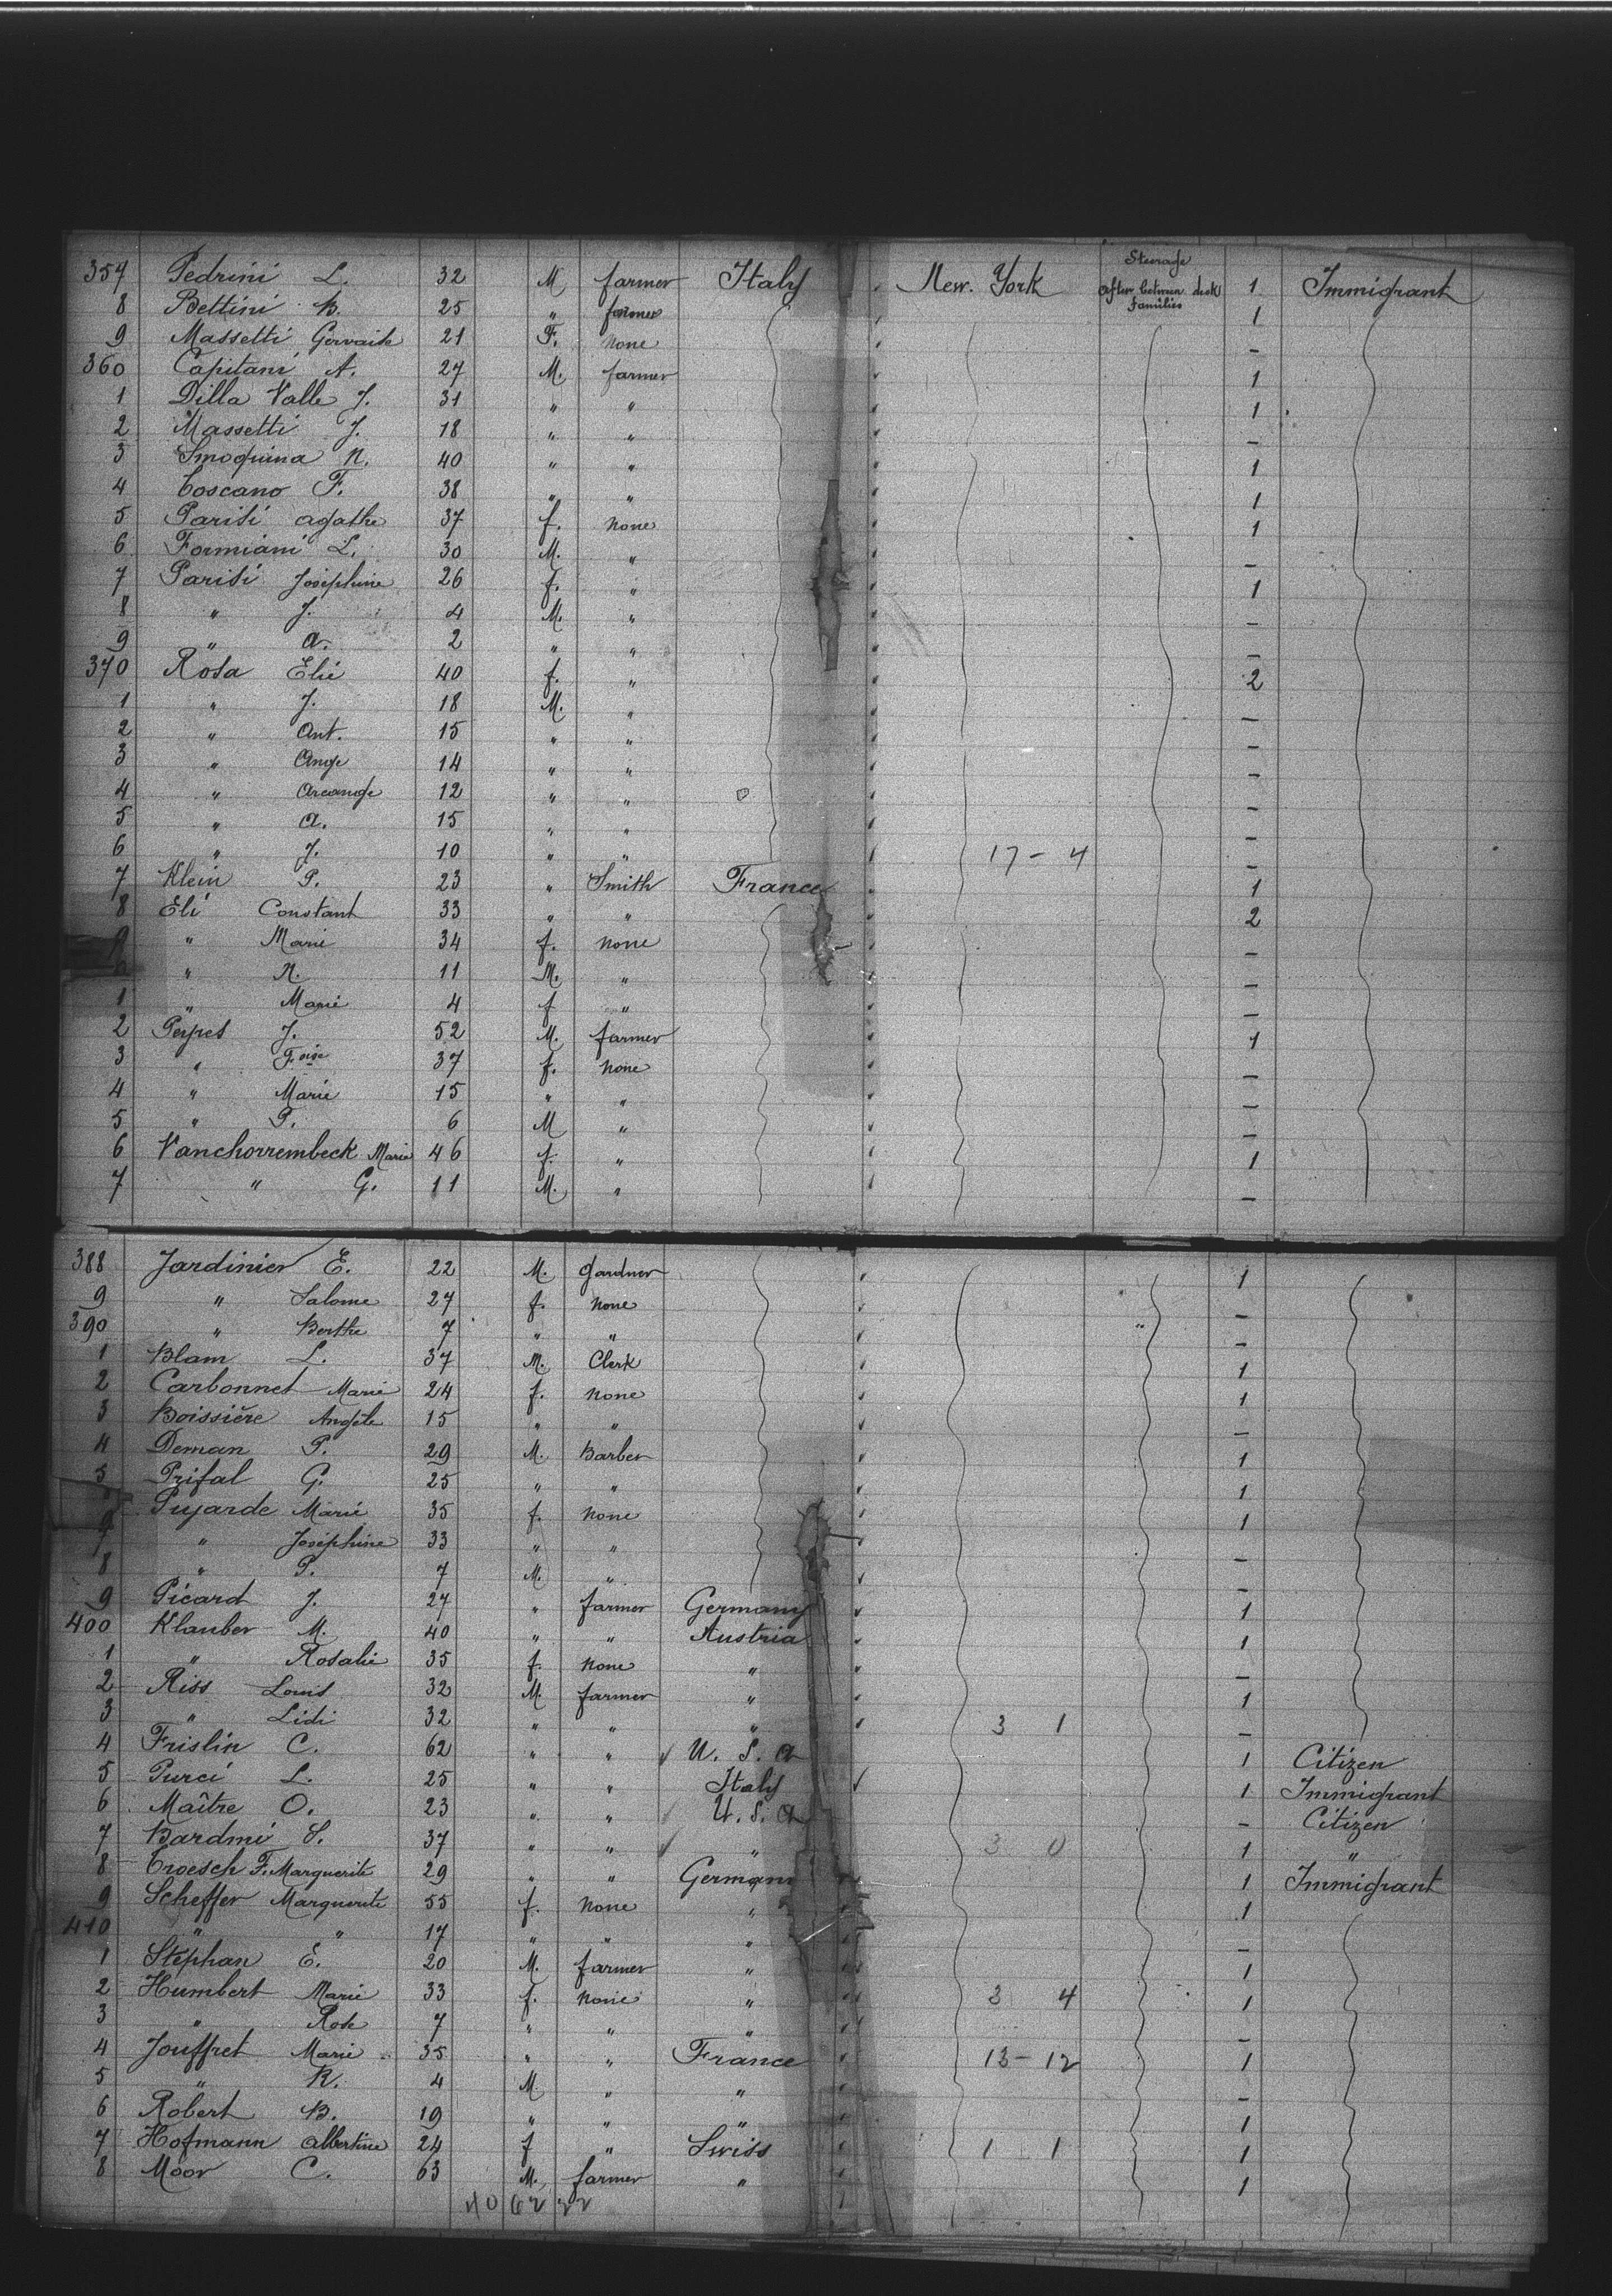 357 Pedrini L. 32 M farmer Italy New. York Steerage after between deck families 1 Immigrant
8 Bettini B. 25 " farmer 1
9 Massetti Gervaise 21 F. none –
360 Capitani A. 27 M. farmer 1
1 Dilla Valle J. 31 " " 1
2 Massetti J. 18 " " –
3 Smoquina N. 40 " " 1
4 Toscano F. 38 " " 1
5 Parisi agathe 37 f. none 1
6 Formiani L. 30 M. " –
7 Parisi Joséphine 26 f. " 1
8 " J. 4 M. " –
9 " a. 2 " " –
370 Rosa Elie 40 f. " 2
1 " J. 18 M. " –
2 " Ant. 15 " " –
3 " Ange 14 " " –
4 " Arcange 12 " " –
5 " a. 15 " " –
6 " J. 10 " " 17 – 4 –
7 Klein P. 23 " Smith France 1
8 Eli Constant 33 " " 2
9 " Marie 34 f. none –
" N. 11 M. " –
1 " Marie 4 f " –
2 Peypes J. 52 M. farmer 1
3 " Foise 37 f. none –
4 " Marie 15 " " –
5 " P. 6 M " –
6 Vanchorrembeck Marie 46 f. " 1
7 " G. 11 M. " –
388 Jardinier E. 22 M. gardner 1
9 " Salome 27 f. none –
390 " Berthe 7 " " –
1 Blam L. 37 M. Clerk 1
2 Carbonnet Marie 24 f. none 1
3 Boissière Angèle 15 " " –
4 Deman P. 29 M. Barber 1
5 Prifal G. 25 " " 1
Pujarde Marie 35 f. none 1
7 " Joséphine 33 " " –
8 " P. 7 M. " –
9 Picard J. 27 " farmer Germany 1
400 Klauber M. 40 " " Austria 1
1 " Rosalie 35 f. none " –
2 Riss Louis 32 M. farmer " 1
3 " Lidi 32 " " " 3 1 –
4 Frislin C. 62 " " U. S. A 1 Citizen
5 Purci L. 25 " " Italy 1 Immigrant
6 Maître O. 23 " " U. S. A – Citizen
7 Bardmi S. 37 " " " 3 0 1 "
8 Troesch F. Marguerite 29 " " Germany 1 Immigrant
9 Scheffer Marguerite 55 f. none " 1
410 " " 17 " " " –
1 Stéphan E. 20 M. farmer " 1
2 Humbert Marie 33 f. none " 3 4 1
3 " Rose 7 " " " –
4 Jouffret Marie 35 " " France 13 – 12 1
5 " R. 4 M. " " –
6 Robert B. 19 " " " 1
7 Hofmann Albertine 24 f " Swiss 1 1 1
8 Moor C. 63 M. farmer " 1
40 62 22